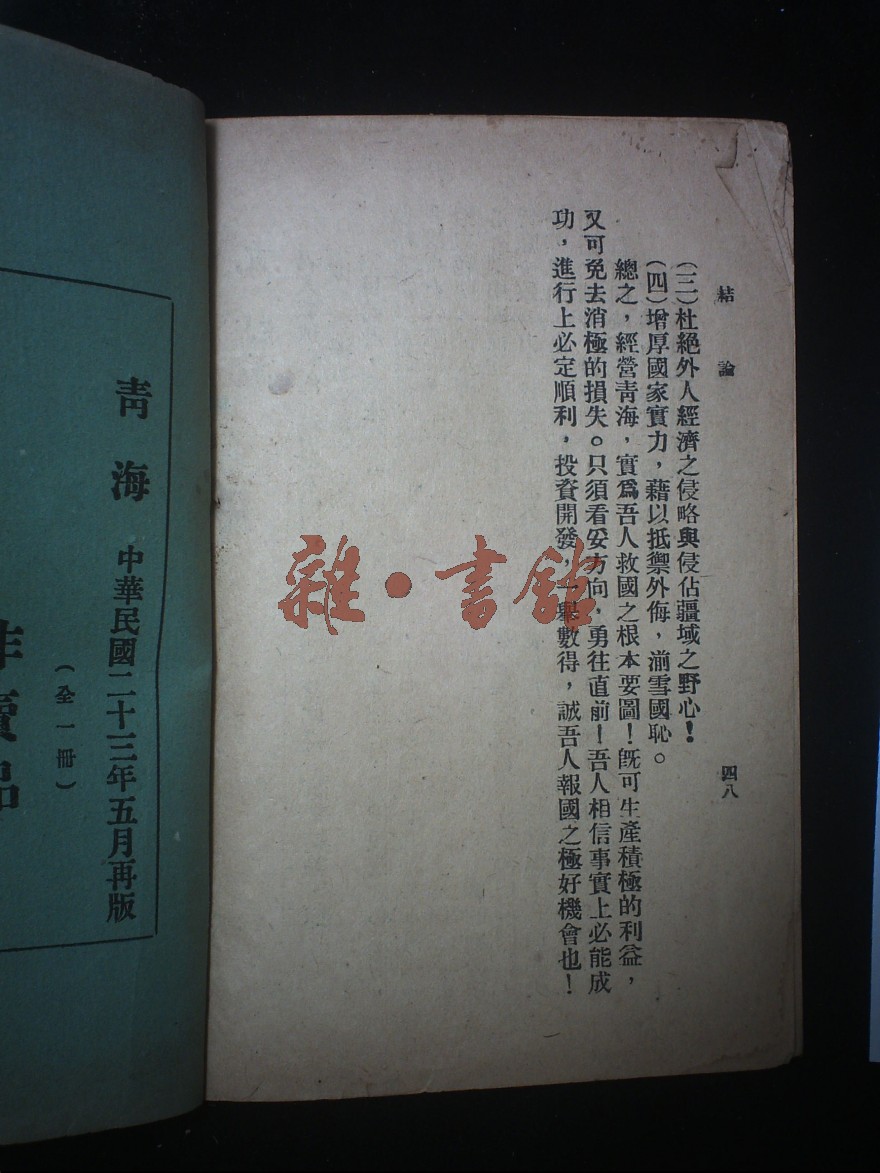 結論
四八
(三)杜絕外人經濟之侵略與侵佔疆域之野心！
(四)增厚國家實力，藉以抵禦外侮，湔雪國恥。
總之，經營青海，實爲吾人救國之根本要圖！旣可生產積極的利益，
又可免去消極的損失。只須看妥方向，勇往直前！吾人相信事實上必能成
功，進行上必定順利，投資開發，一舉數得，誠吾人報國之極好機會也！
青海 中華民國二十三年五月再版
(全一冊)
非賣品
雜·書館